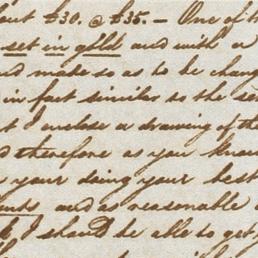 but £30. @ £35. — One of th
set in gold and with a
nd made so as to be chang
in fact similar to the
t I enclose a drawing of the
d therefore as you know
your doing your best
and as reasonable
I should be able to get